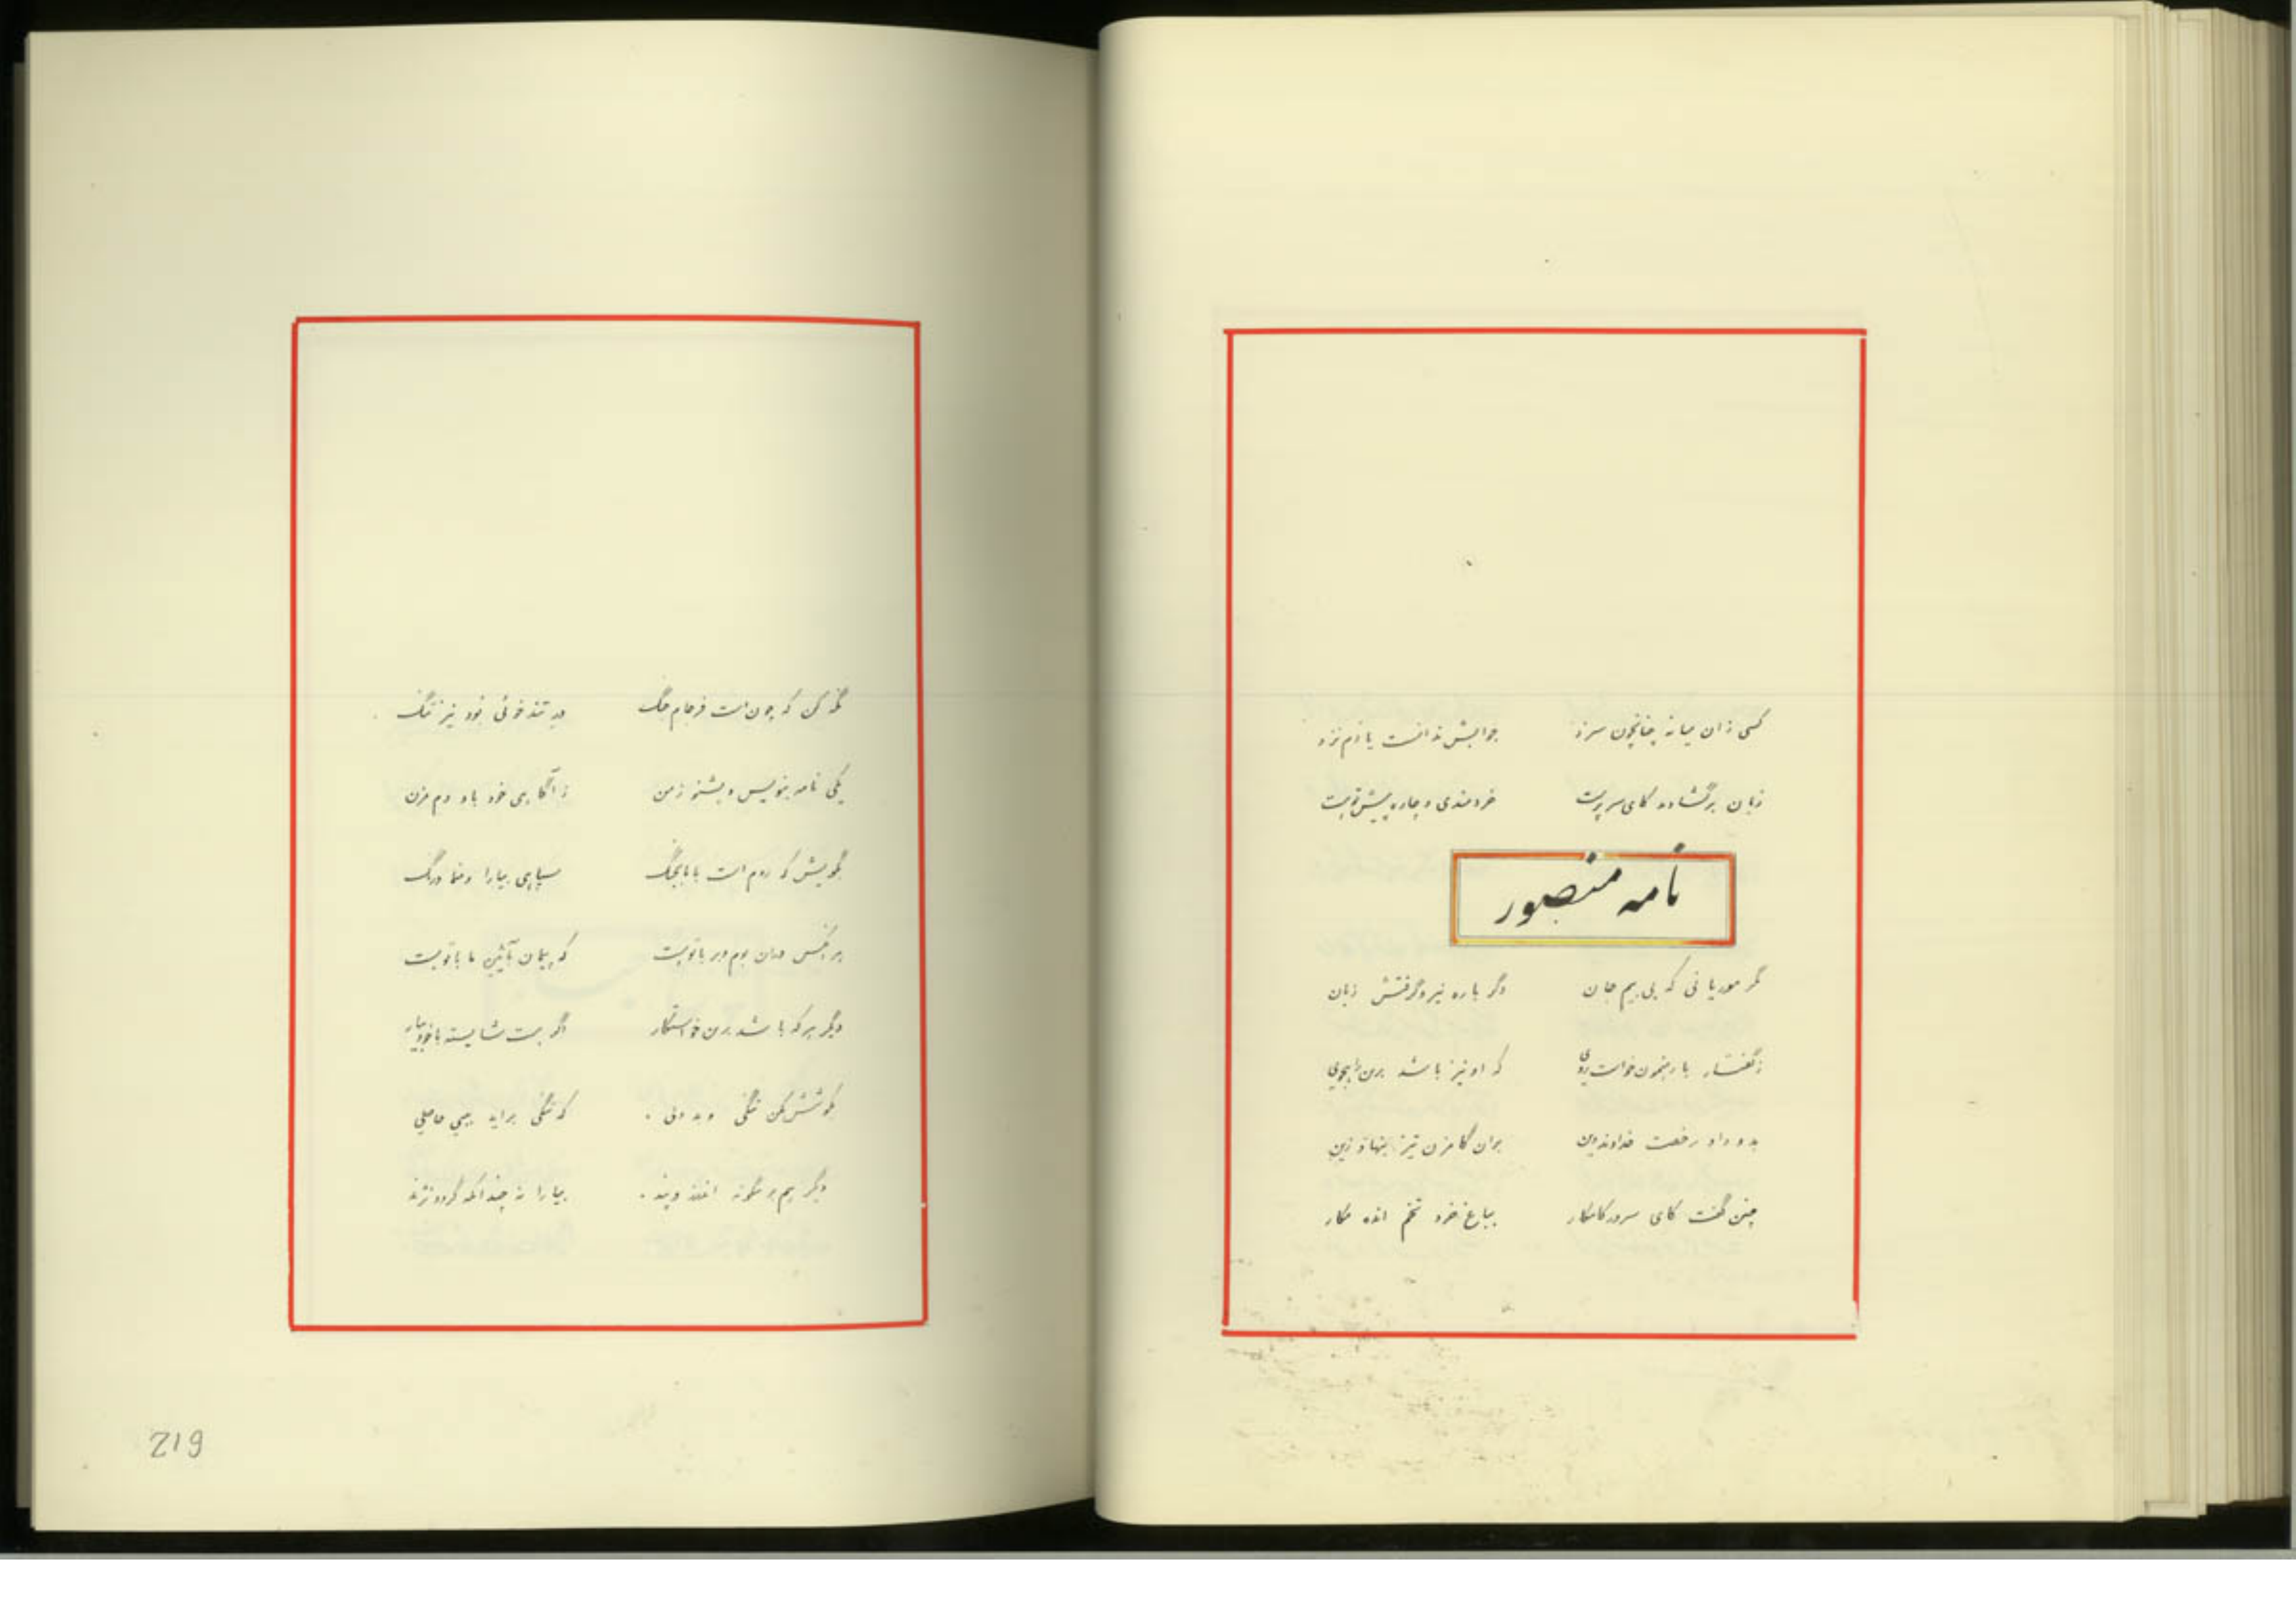 کسی زان میانه چنانچون سزد جوابش ندانست یا دم نزد
زبان برگشادند کای سرپرست خردمندی و چاره پیش تو است
نامه منصور
مگر موریانی که بی بیم جان دگر باره نیرو گرفتش زبان
ز گفتار با رهنمون خواست روی که او نیز باشد برن راهجوی
بدو داد رخصت خداوند دین بران گامزن تیز بنهاد زین
چنین گفت کای سرور کامکار بباغ خرد تخم انده مکار
نگه کن که چون است فرجام جنگ تندخوئی بُود نیز ننگ
یکی نامه بنویس و بشنو ز من ز آگاهی خود باو دم مزن
بگویش که روم است با ما بجنگ سپاهی بیارا و منما درنگ
هر آنکس دران بوم و بر با تو است که پیمان و آئین ما با تو است
دیگر هر که باشد برن خواستگار اگر هست شایسته با خود بیار
بکوشش مکن تنگی و بد دلی که تنگی براید به بی حاصلی
دگر هم بر اینگونه اندرز و پند بیارا نه چندانکه گردد نژند
219